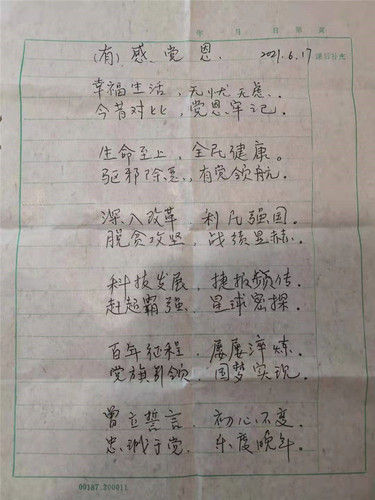 年 月 日 第 页
(有)感党恩. 2021.6.17
幸福生活，无忧无虑。
今昔对比，党恩牢记。
生命至上，全民健康。
驱邪除恶，有党领航。
深入改革，利民强国。
脱贫攻坚，战绩显赫。
科技发展，捷报频传。
赶超霸强，星球密探。
百年征程，屡屡淬炼。
党旗引领，国梦实现。
曾立誓言，初心不变。
忠诚于党，乐度晚年。
00187.200011